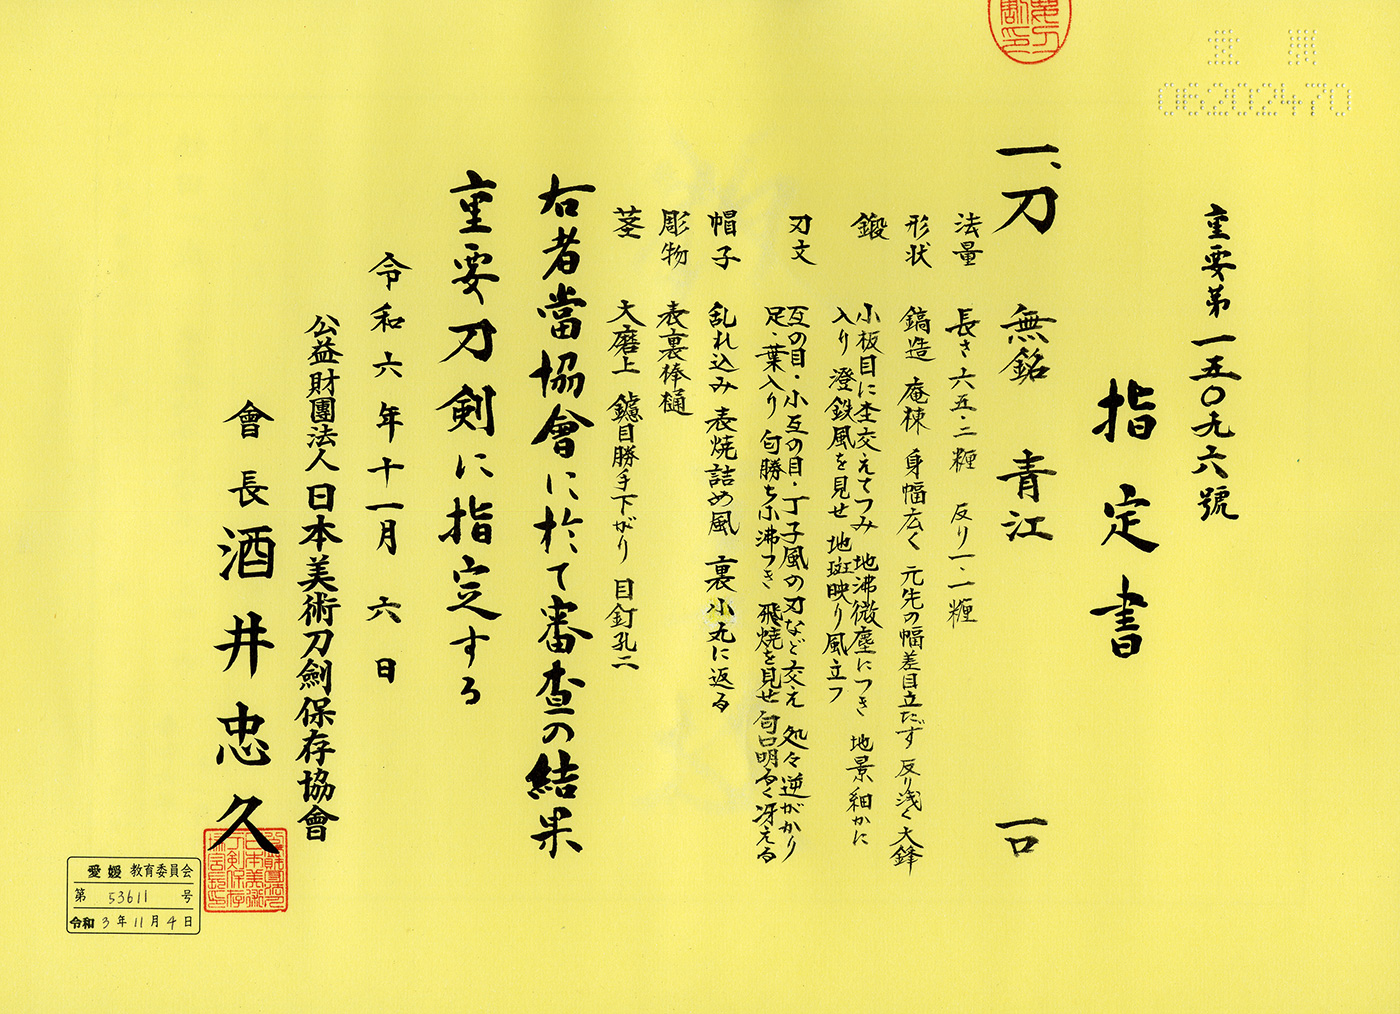 重要
06202470
重要第一五〇九六號
指定書
一、刀 無銘 青江 一口
法量 長さ六五・二糎 反り一・一糎
形状 鎬造 庵棟 身幅広く 元先の幅差目立たず 反り浅く 大鋒
鍛 小板目に杢交えてつみ 地沸微塵につき 地景細かに
入り 澄鉄風を見せ 地斑映り風立つ
刃文 互の目・小互の目・丁子風の刃など交え 処々逆がかり
足・葉入り 匂勝ち小沸つき 飛焼を見せ 匂口明るく冴える
帽子 乱れ込み 表焼詰め風 裏小丸に返る
彫物 表裏棒樋
茎 大磨上 鑢目勝手下がり 目釘孔二
右者當協會に於て審査の結果
重要刀剣に指定する
令和六年十一月六日
公益財團法人日本美術刀劍保存協會
會長 酒井忠久
愛媛 教育委員会
第 53611 号
令和 3年11月4日